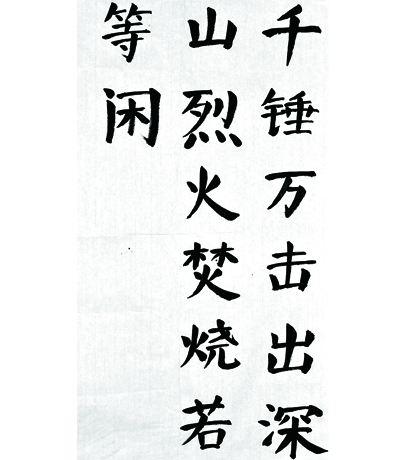 千锤万击出深
山烈火焚烧若
等闲